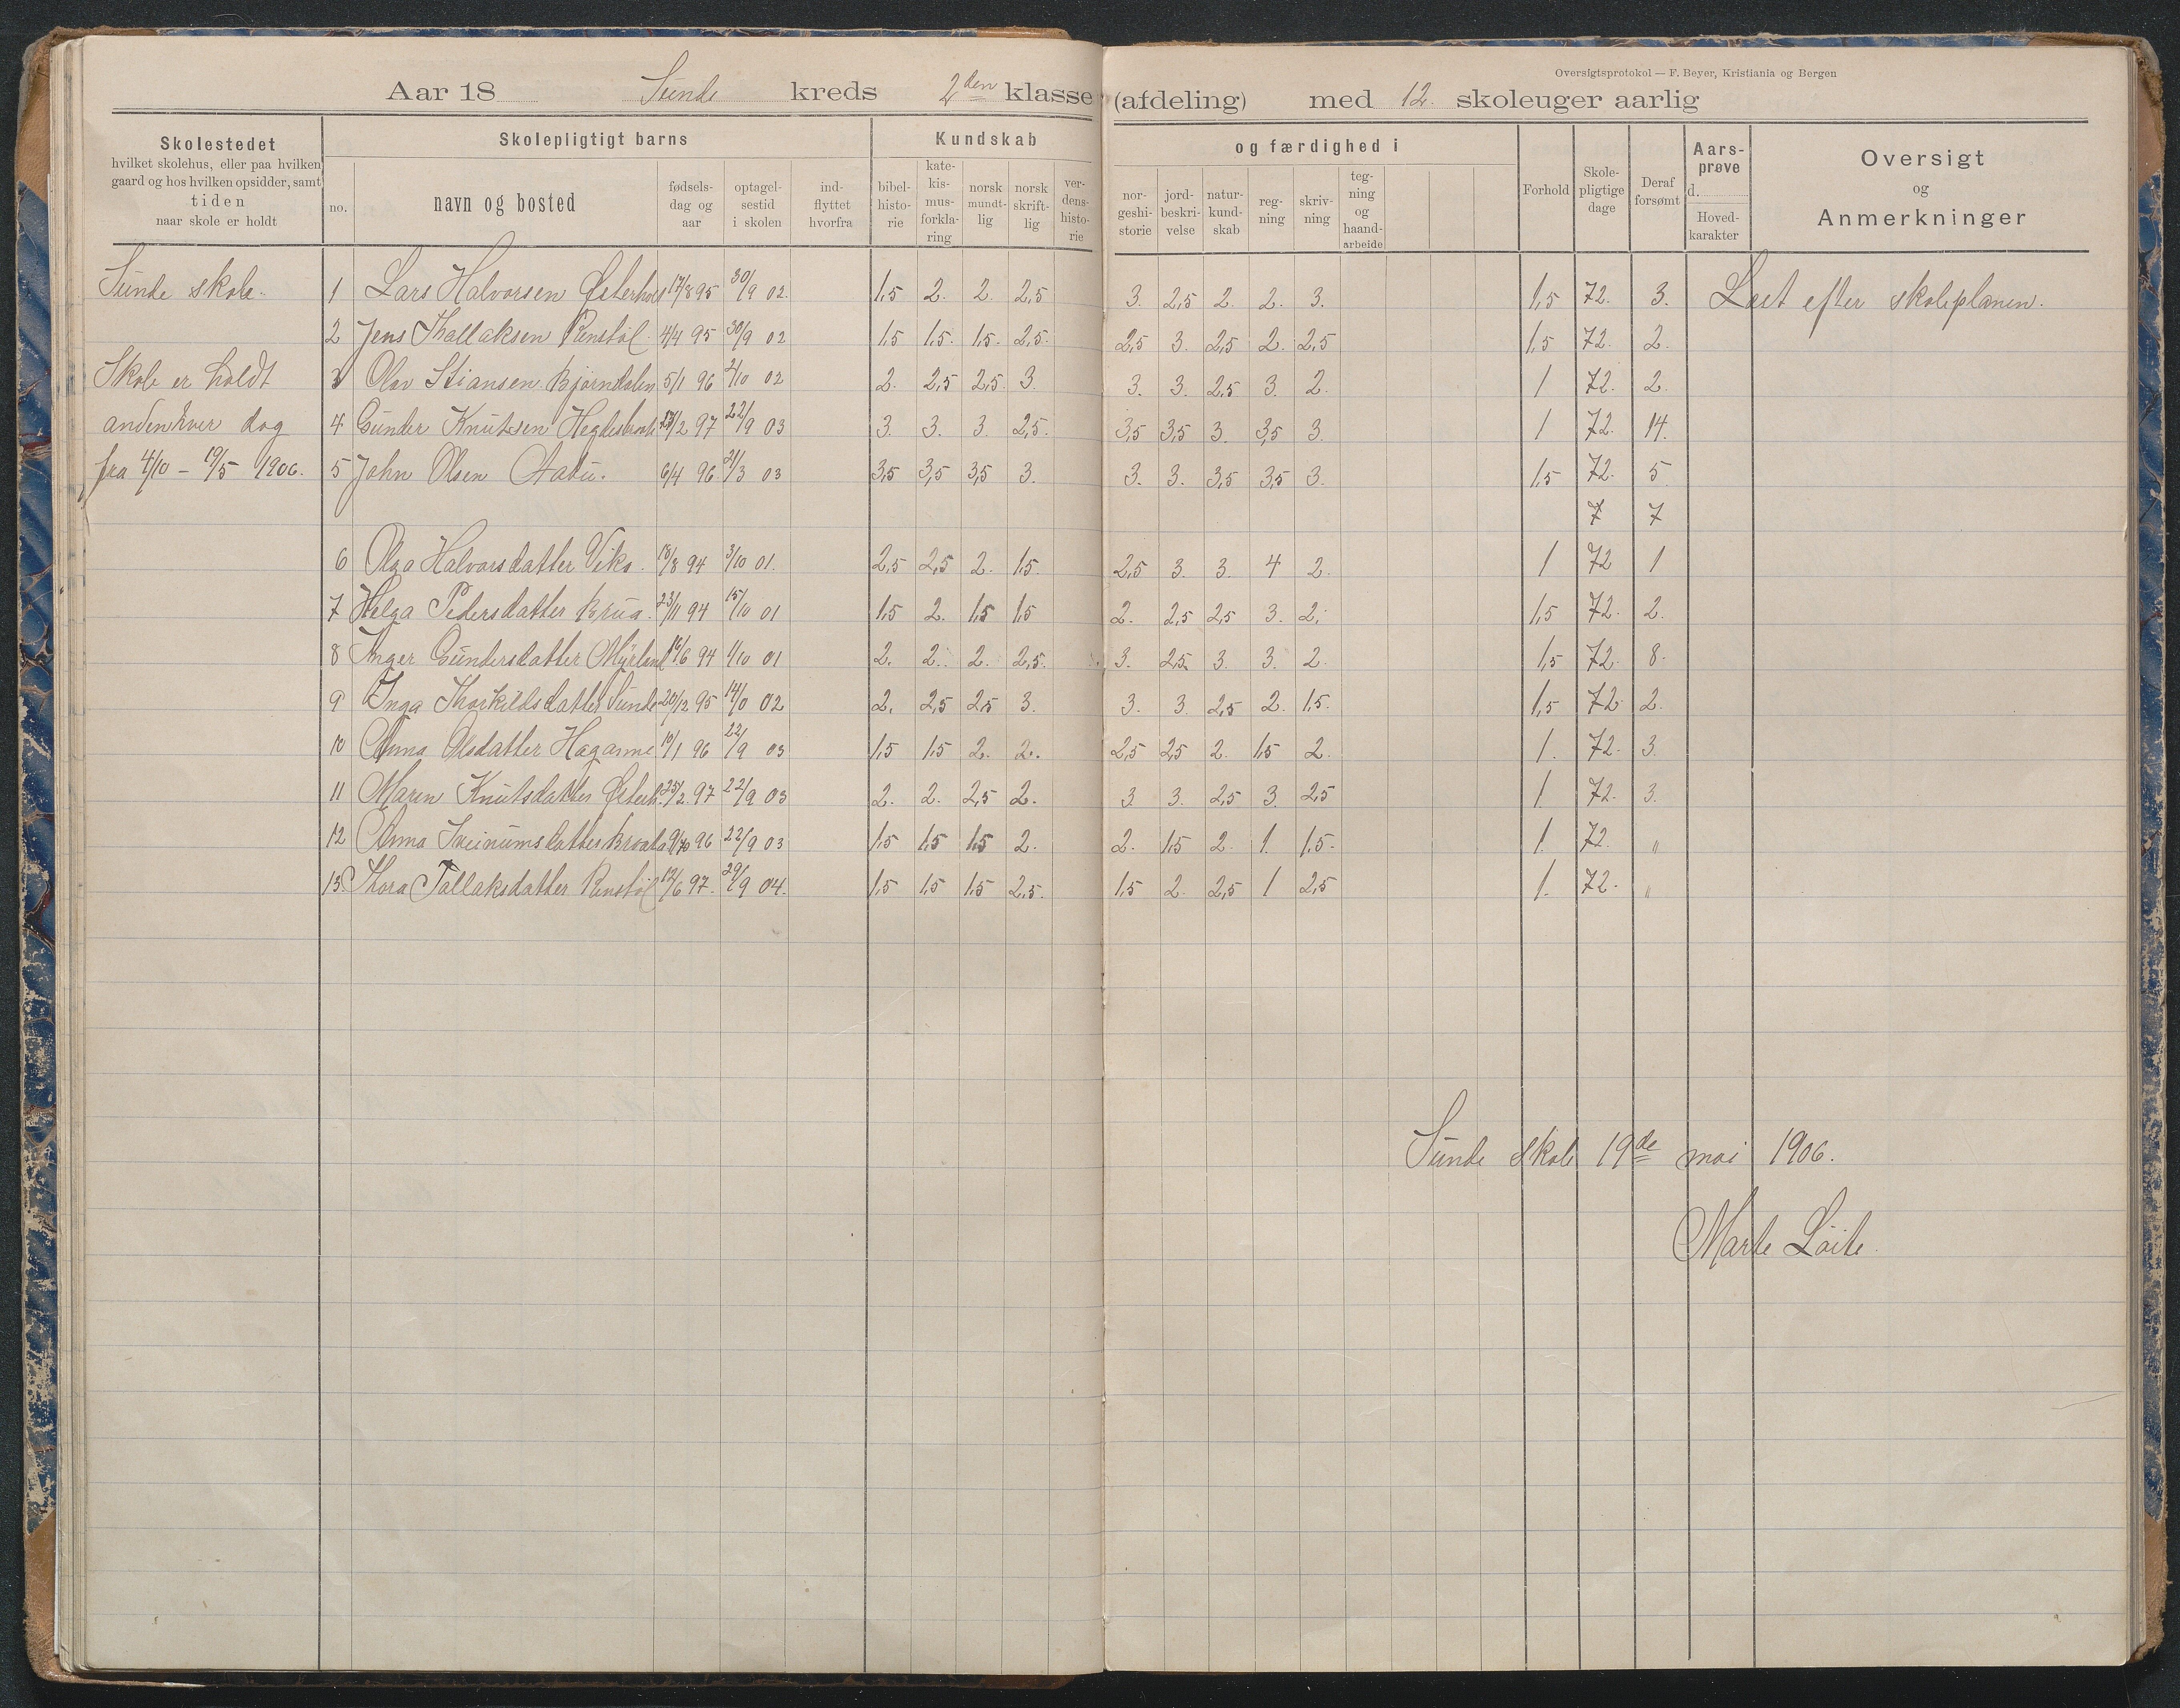 Oversigtsprotokol — F. Beyer, Kristiania og Bergen
Aar 18 Sunde kreds 2den klasse (afdeling) med 12. skoleuger aarlig
Skolestedet
hvilket skolehus, eller paa hvilken
gaard og hos hvilken opsidder, samt
tiden
naar skole er holdt
Skolepligtigt barns
no.
navn og bosted
fødsels-
dag og
aar
optagel-
sestid
i skolen
ind-
flyttet
hvorfra
Kundskab
bibel-
histo-
rie
kate-
kis-
mus-
forkla-
ring
norsk
mundt-
lig
norsk
skrift-
lig
ver-
dens-
histo-
rie
og færdighed i
nor-
geshi-
storie
jord-
beskri-
velse
natur-
kund-
skab
reg-
ning
skriv-
ning
teg-
ning
og
haand-
arbeide
Forhold
Skole-
pligtige
dage
Deraf
forsømt
Aars-
prøve
d.
Hoved-
karakter
Oversigt
og
Anmerkninger
Sunde skole.
Skole er holdt
anden hver dag
fra 4/10 - 19/5 1906.
1 Lars Halvorsen Østerholt 17/8 95 30/9 02. 1,5 2. 2. 2,5 3. 2,5 2. 2. 3. 1,5 72. 3. Læst efter skoleplanen.
2 Jens Thallaksen Renstöl. 4/4 95 30/9 02 1,5 1,5. 1,5. 2,5. 2,5 3. 2,5 2. 2,5 1,5 72. 2.
3 Olav Stiansen Bjørndalen 5/1 96 2/10 02 2. 2,5 2,5. 3. 3. 3. 2,5 3. 2. 1 72. 2.
4 Gunder Knutsen 2 97 22/9 03 3. 3. 3. 2,5. 3,5 3,5 3. 3,5 3. 1 72. 14.
5 John Olsen Aabu. 6/4 96. 21/3 03 3,5 3,5 3,5 3. 3. 3. 3,5 3,5 3. 1,5 72. 5.
7 7
6 Olga Halvorsdatter Viks. 18/8 94 3/10 01. 2,5 2,5 2. 1,5. 2,5 3. 3. 4 2. 1 72 1
7 Helga Pedersdatter Brua. 23/11 94 15/10 01 1,5 2. 1,5 1,5 2. 2,5 2,5 3. 2. 1,5 72. 2.
8 Inger Gundersdatter Myrland 16/6 94 1/10 01 2. 2. 2. 2,5. 3. 2,5. 3. 3. 2. 1,5 72. 8.
9 Inga Thorkildsdatter Sunde 20/12 95 14/10 02 2. 2,5 2,5 3. 3. 3. 2,5 2. 1,5. 1,5 72. 2.
10 Anna Olsdatter Hagane 10/1 96 22/9 03 1,5 1,5 2. 2. 2,5 2,5 2. 1,5 2. 1. 72. 3.
11 Maren Knutsdatter Østerh. 25/2. 97 22/9 03 2. 2. 2,5 2. 3. 3. 2,5 3. 2,5 1. 72. 3.
12 Anna 9/10 96 22/9 03 1,5 1,5 1,5 2. 2. 1,5 2. 1. 1,5. 1. 72. "
13. Thora Tallaksdatter Renstöl 12/6 97. 29/9 04. 1,5 1,5 1,5 2,5. 1,5 2. 2,5 1 2,5 1. 72. "
Sunde skole 19de mai 1906.
Marte Löite.